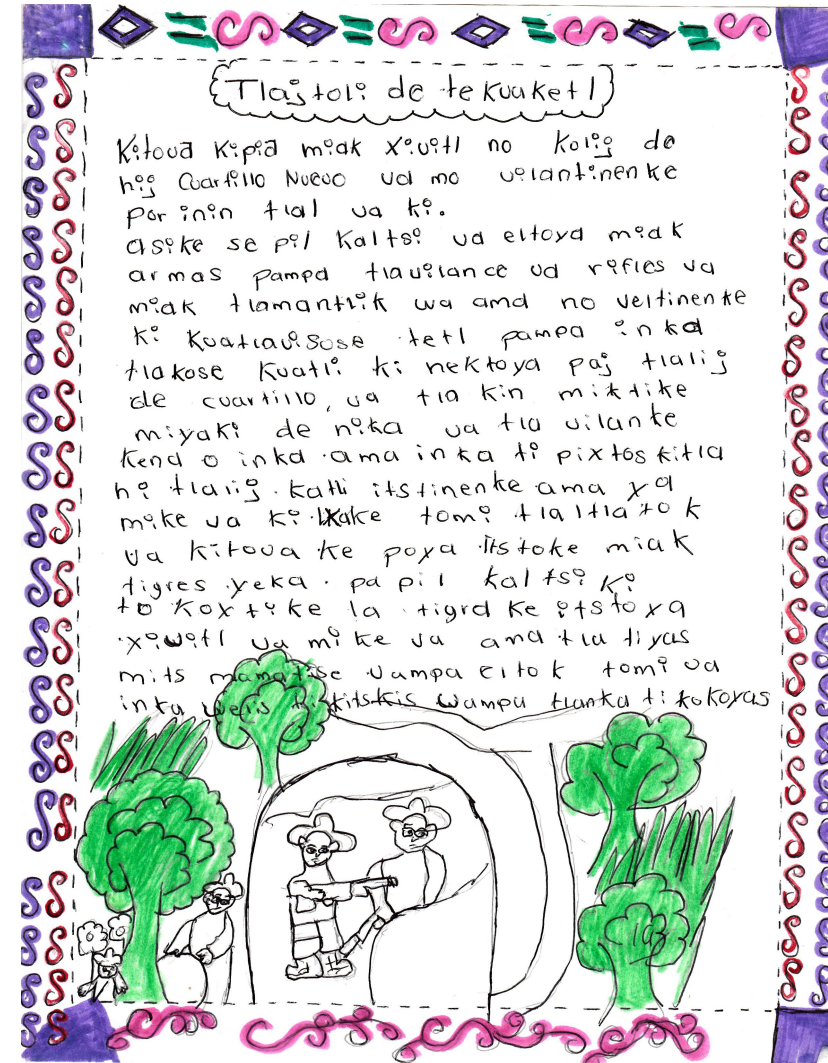 Tlajtoli de tekuaketl
Kitoua kipia miak xiuitl no kolij de
hij Cuartillo Nuevo ua mo uilantinenke
por inin tlal ua ki.
asike se pil kaltsi ua eltoya miak
armas pampa tlauilance ua rifles ua
miak tlamantlik wa ama no veltinenke
ki kuatlauisose tetl pampa inka
tlakose kuatli ki nektoya paj tlalij
de cuartillo, ua tla kin miktike
miyaki de nika ua tla uilanke
kena o inka ama inka ti pixtoskitla
ni tlalij katli itstinenke ama ya
mike ua ki tomi tlaltlato k
ua kitoua ke poya itstoke miak
tigres yeka pa pil kaltsi ki
to koxtike la tigra ke itstoya
xiwitl ua mike ua ama tla tiyas
mits mamatise uampa eltok tomi ua
inka welis ti kitskis wampa tlanka ti kokoyas